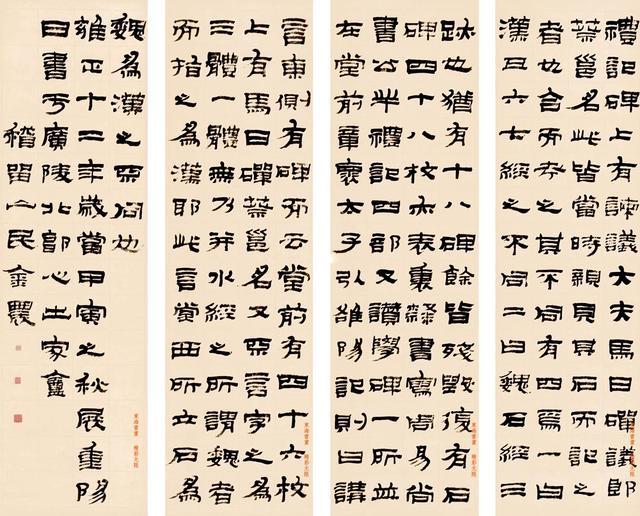 禮記碑上有諫議大夫馬日磾議郎
蔡邕名此皆當時親見其石而記之
者也合而考之其不同有四焉一曰
漢曰六七經之不同二曰魏石經三
跡也猶有十八碑餘皆殘毀復有石
碑四十八枚亦表裏隸書寫周易尚
書公羊禮記四部又讚學碑一所並
在堂前章懷太子引雒陽記則曰講
言東側有碑而云堂前有四十六枚
上有馬日磾蔡邕名又不言字之為
三體一體無乃并水經之所謂魏者
而指之為漢耶此言堂西所立石為
魏為漢之不同也
雍正十二年歲當甲寅之秋展重陽
日書于廣陵北郭心出家盦
稽留山民金農